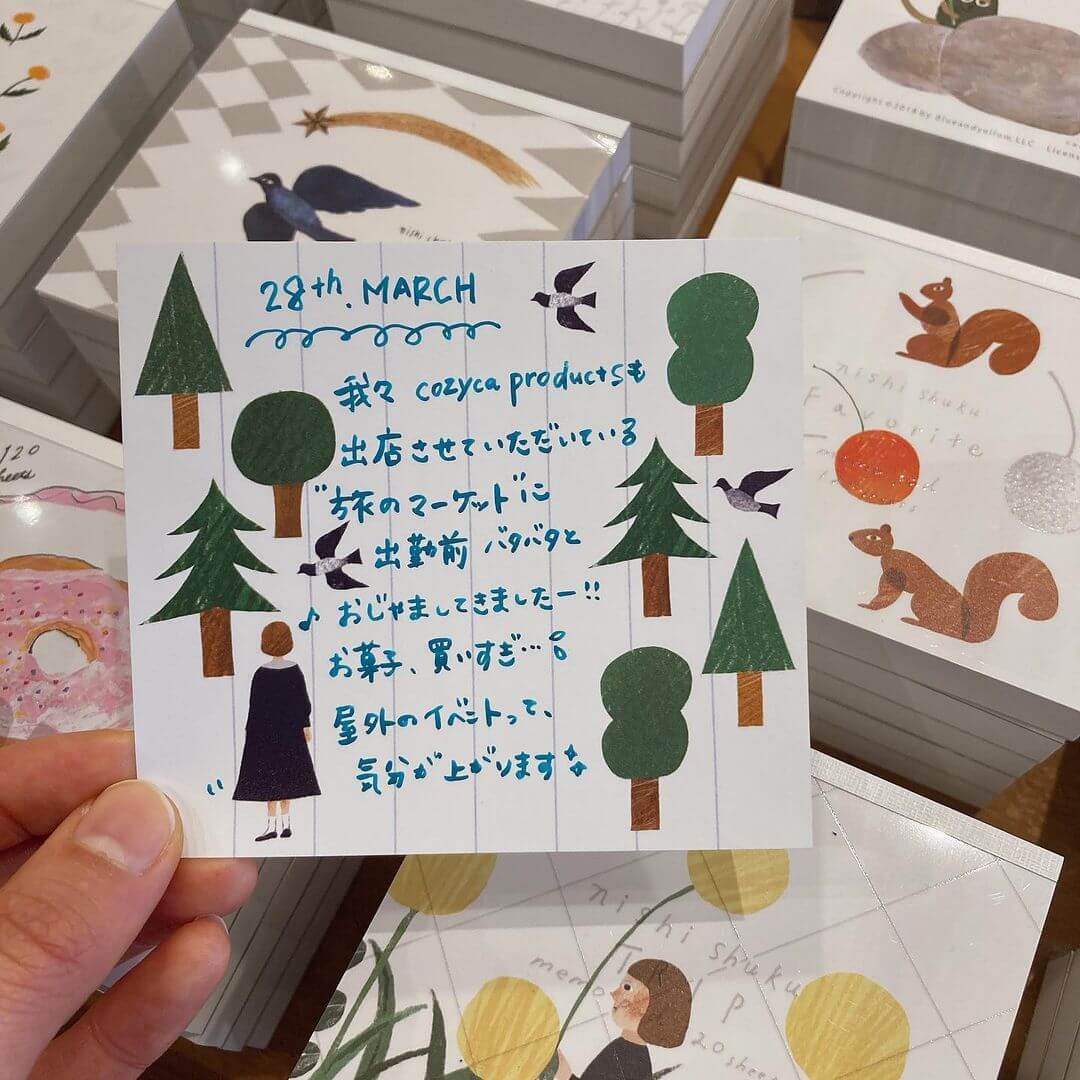 28th. MARCH
我々 cozyca productsも
出店させていただいている
"旅のマーケット"に
出勤前 バタバタと
♪おじゃましてきましたー!!
お菓子、買いすぎ…。
屋外のイベントって、
気分が上がります
Copyright ©2018 by Blueandyellow, LLC
nishi shuku
Favorite
120
nishi shuku
Trip
memo
20shee